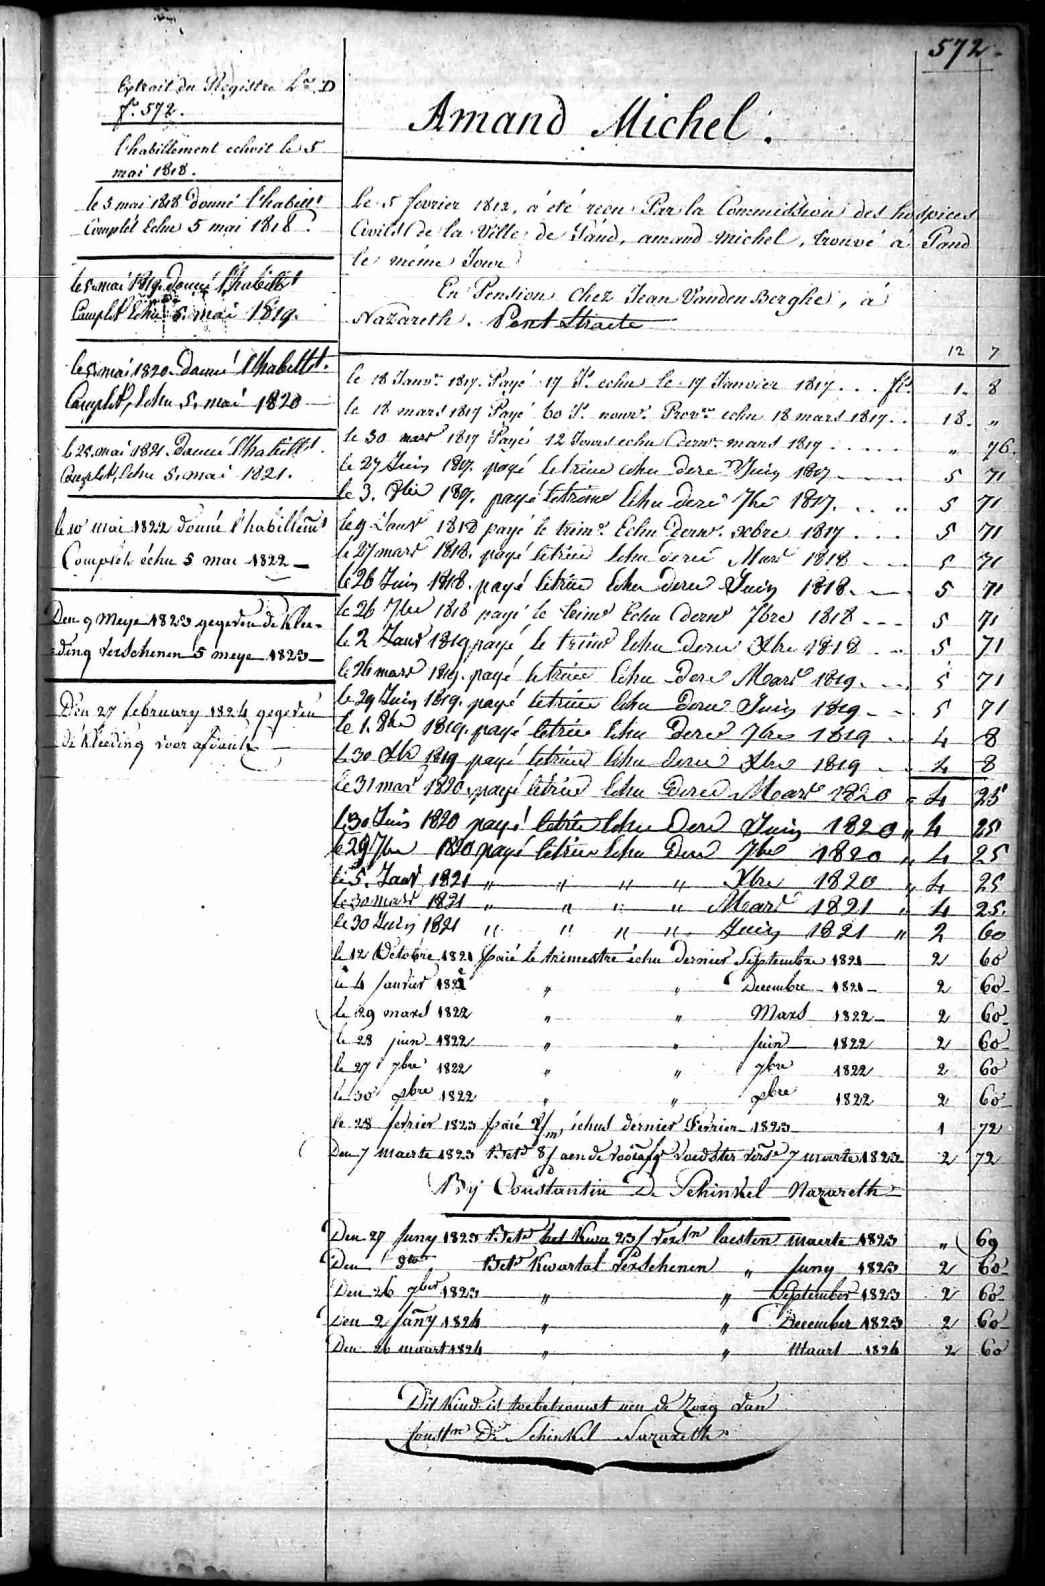 572.
Extrait du Registre Lra. D
fo. 572.
l'habillement echoit le 5
mai 1818.
le 5 mai 1818 donné l'habillt
Complèt Echu 5 mai 1818.
le 5 mai 1819. donné l'habillt
Complèt Echu 5. mai 1819.
le 5. mai 1820. donné l'habillt.
Complèt, Echu 5. mai 1820
le 25. mai 1821. donné l'habillt.
Complèt, Echu 5. mai 1821.
le 10 mai 1822 donné l'habillemt
Complèt échu 5 mai 1822
Den 9 Meye 1823 gegeven de klee-
ding verschenen 5 meye 1823
Den 27 february 1824 gegeven
de kleeding voor afvante
Amand Michel.
le 5 fevrier 1812, a été reçu Par la Commission des hospices
Civils de la Ville de Gand, amand michel, trouvé à Gand
le même Jour
En Pension chez Jean VandenBerghe, à
Nazareth. Pont Straete
12 7
le 18 Janvr. 1817. Payé 17 Js. echu le 17 Janvier 1817 . . . fls. 1. 8
le 18 mars 1817 Payé 60 Js. nour. Provre echu 18 mars 1817 . . 18. "
le 30 mars 1817 Payé 12 Jours echu dernr. mars 1817 . . . . " 76.
le 27 Juin 1817. payé letrim echu derer Juin 1817 5 71
le 3. 8bre 1817. payé letrim Echu derer 7bre 1817. . . . 5 71
le 9 Janvr 1818 payé le trimre Echu dernr. Xbre 1817 . . . 5 71
le 27 mars 1818. payé letrim Echu derer Mars 1818 5 71
le 26 Juin 1818. payé letrim Echu derer Juin 1818. 5 71
le 26 7bre 1818 payé le trimre Echu dernr 7bre 1818 5 71
le 2 Janvr 1819 payé le trimre Echu derer Xbre 1818 5 71
le 26 mars 1819. payé letrim Echu derer Mars 1819. 5 71
le 29 Juin 1819. payé letrim Echu derer Juin 1819 5 71
le 1. 8bre 1819. payé letrim Echu derer 7bre 1819 4 8
le 30 Xbre 1819 payé letrim Echu derer Xbre 1819 4 8
le 31 mars 1820. payé letrim Echu derer Mars 1820 4 25
le 30 Juin 1820 payé letrim Echu derer Juin 1820 " 4 25
le 29 7bre 1820 payé letrim Echu derer 7bre 1820 " 4 25
le 5. Janvr 1821 " " " " Xbre 1820 " 4 25
le 30 mars 1821 " " " " Mars 1821 " 4 25.
le 30 Juin 1821 " " " " Juin 1821 " 2 60
le 12 Octobre 1821 paié le trimestre échu dernier Septembre 1821 2 60
le 4 Janvier 1822 " " Decembre 1821 2 60
le 29 mars 1822 " " Mars 1822 2 60
le 28 juin 1822 " " juin 1822 2 60
le 27 7bre 1822 " " 7bre 1822 2 60
le 30 xbre 1822 " " xbre 1822 2 60
le 28 fevrier 1823 paié 2/m échus dernier Fevrier 1823 1 72
Den 7 maerte 1823 Bete. aen de voedster 7 maerte 1823 2 72
By Constantin De Schinkel Nazareth
Den 27 Juny 1823 Bete. het Kwa 23/ versn laesten maerte 1823 " 69
Den dito Bete Kwartal Verschenen " Juny 1823 2 60
Den 26 7ber 1823 " " September 1823 2 60
Den 2 Jany 1824 " " December 1823 2 60
Den 26 maart 1824 " " Maart 1824 2 60
Dit Kind is toebetrouwt aen de Zorg van
Constn De Schinkel Nazareth